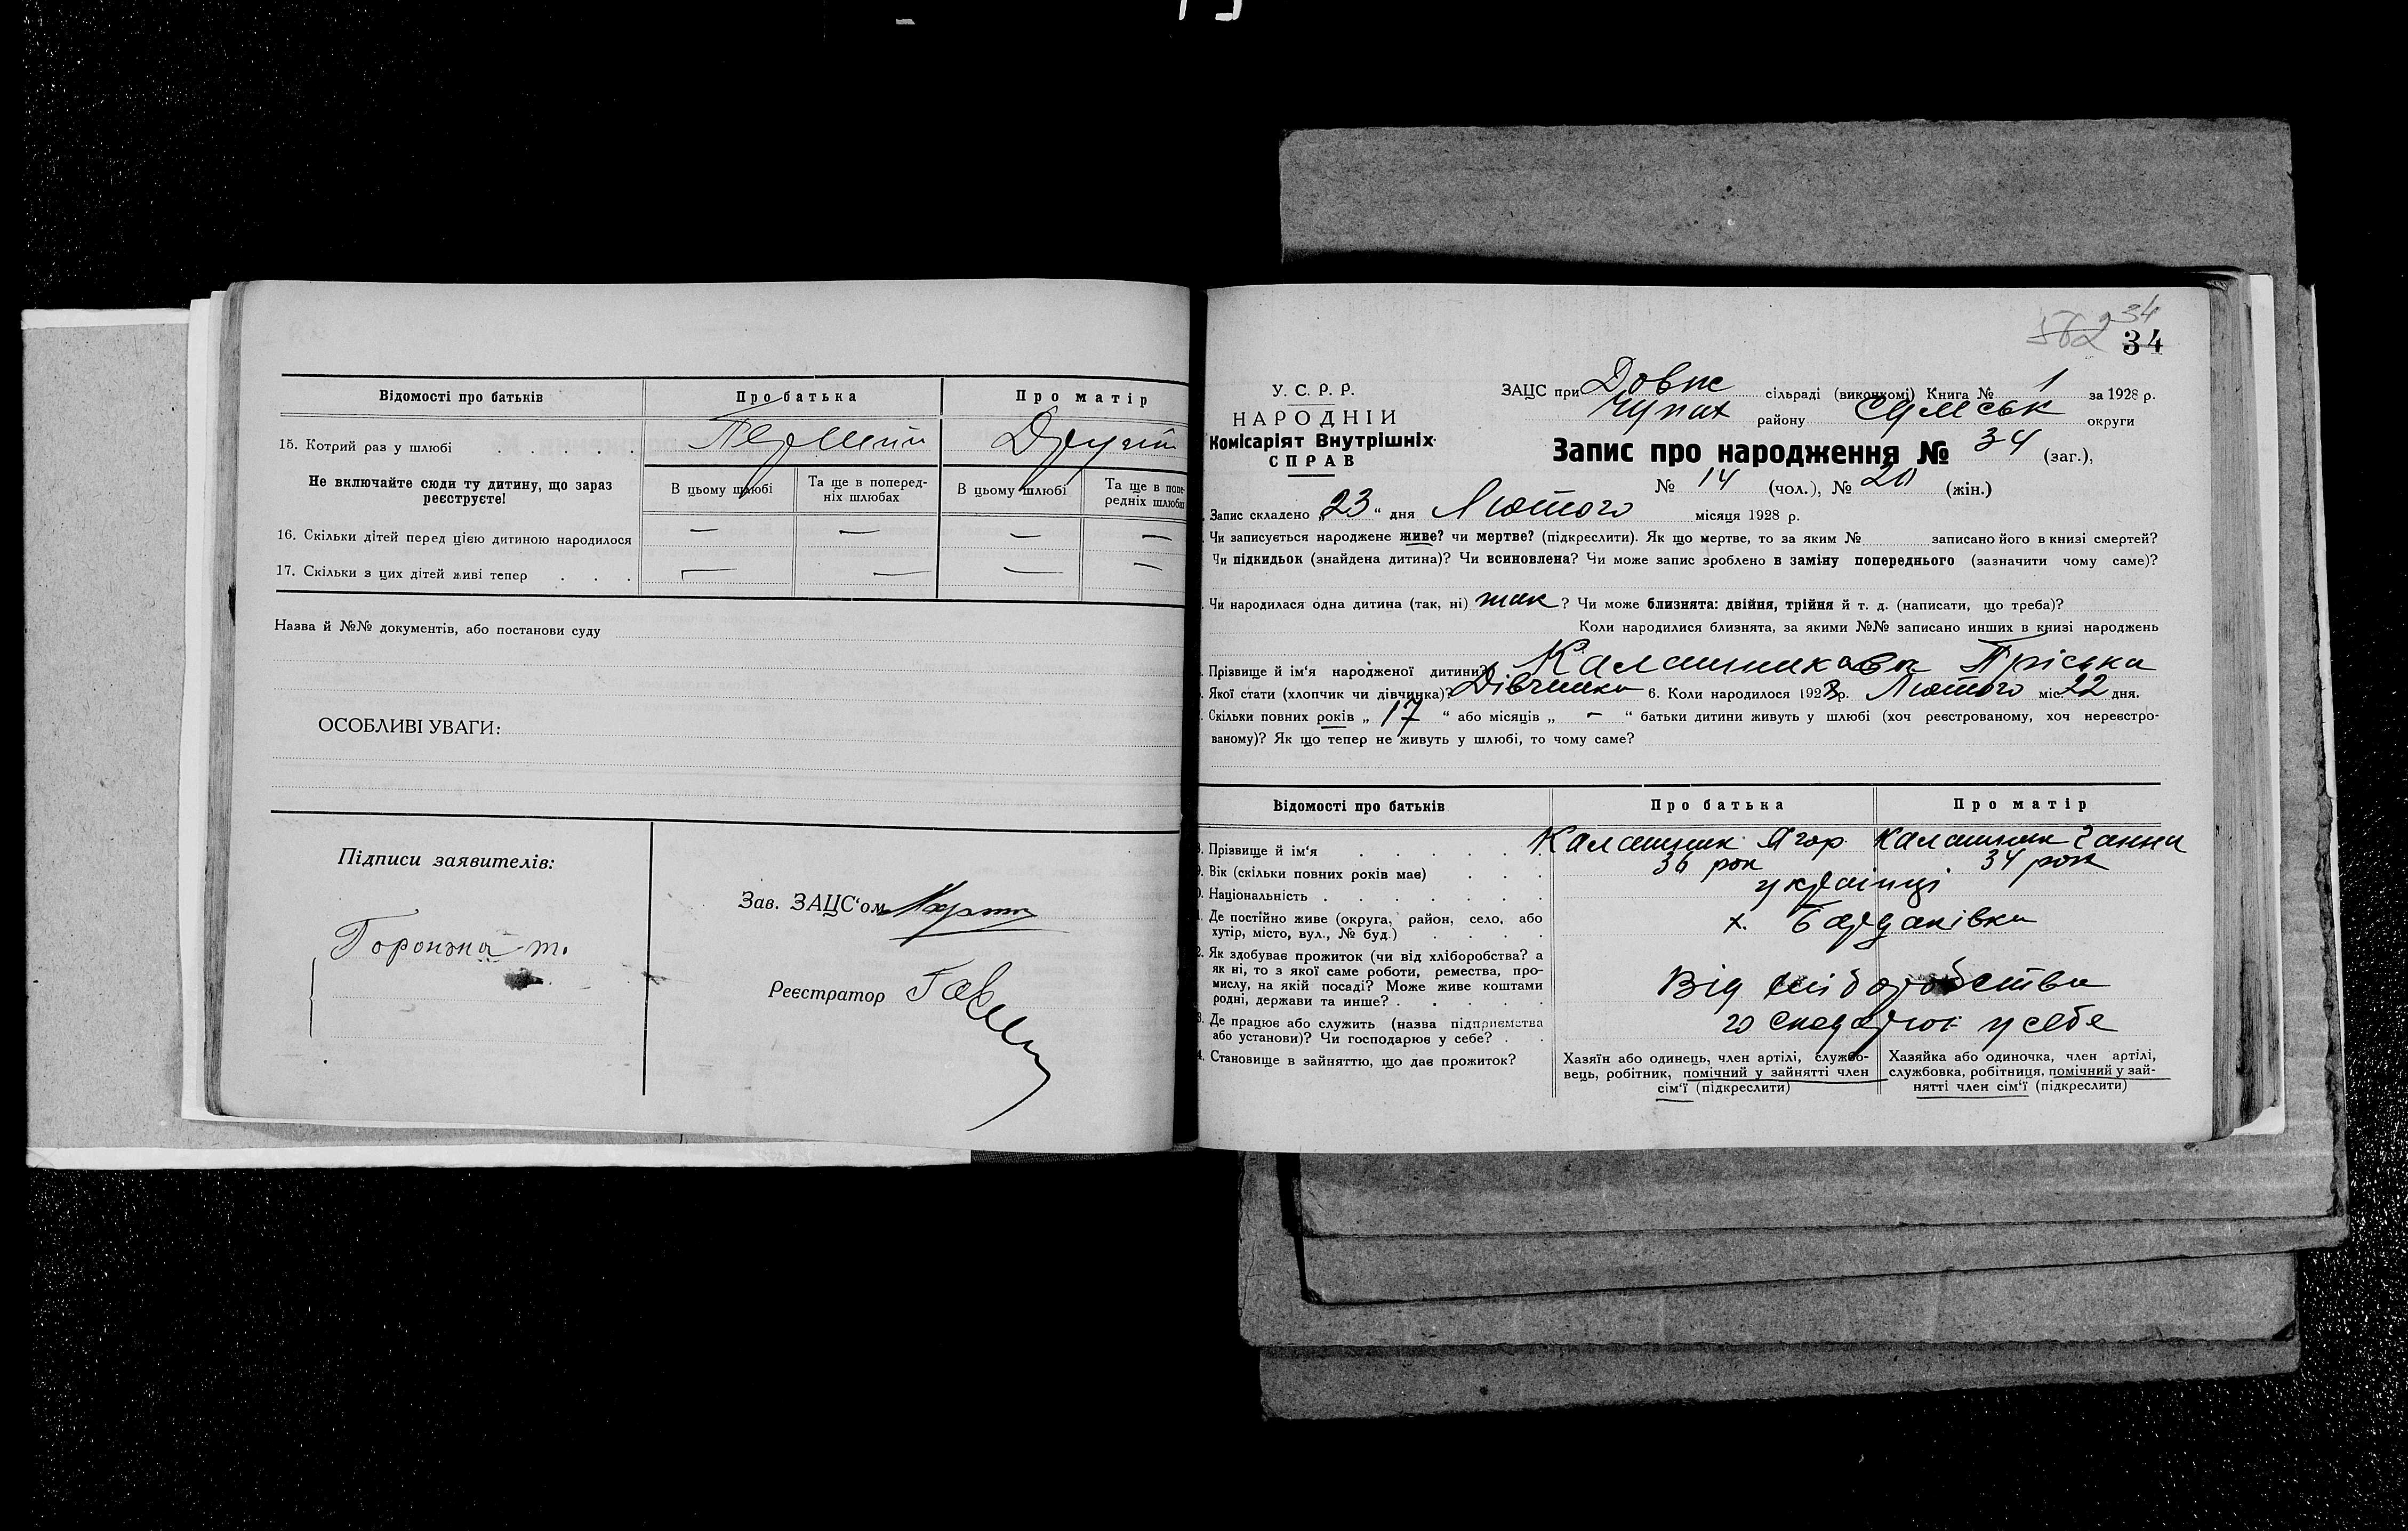 Відомості про батьків Про батька Про матір
15. Котрий раз у шлюбі Перший Другий
Не включайте сюди ту дитину, що зараз реєструєте!
В цьому шлюбі Та ще в поперед-
ніх шлюбах В цьому шлюбі Та ще в попе-
редніх шлюбах
16. Скільки дітей перед цією дитиною народилося — — — —
17. Скільки з цих дітей живі тепер — — — —
Назва й №№ документів, або постанови суду
ОСОБЛИВІ УВАГИ:
Підписи заявителів:
Зав. ЗАЦС‘ом
Реєстратор
562 34
34
У. С. Р. Р.
НАРОДНІЙ
Комісаріят Внутрішніх
СПРАВ
ЗАЦС при Довж сільраді (виконкомі) Книга № 1 за 1928 р.
Чупах району Сумськ округи
Запис про народження № 34 (заг.),
№ 14 (чол.), № 20 (жін.)
Запис складено „23“ дня Лютого місяця 1928 р.
Чи записується народжене живе? чи мертве? (підкреслити). Як що мертве, то за яким № записано його в книзі смертей?
Чи підкидьок (знайдена дитина)? Чи всиновлена? Чи може запис зроблено в заміну попереднього (зазначити чому саме)?
Чи народилася одна дитина (так, ні) так? Чи може близнята: двійня, трійня й т. д. (написати, що треба)?
Коли народилися близнята, за якими №№ записано инших в книзі народжень
Прізвище й ім‘я народженої дитини? Калашникова Пріська
Якої стати (хлопчик чи дівчинка)? Дівчинка 6. Коли народилося 1928 р. Лютого міс. 22 дня.
Скільки повних років „17“ або місяців „-“ батьки дитини живуть у шлюбі (хоч реєстрованому, хоч нереєстро-
ваному)? Як що тепер не живуть у шлюбі, то чому саме?
Відомості про батьків Про батька Про матір
Прізвище й ім‘я Калашник Ягор Калашник Ганна
Вік (скільки повних років має) 36 рок 34 рок
Національність українці
Де постійно живе (округа, район, село, або
хутір, місто, вул., № буд.) х. Бардаківка
Як здобуває прожиток (чи від хліборобства? а
як ні, то з якої саме роботи, ремества, про-
мислу, на якій посаді? Може живе коштами
родні, держави та инше? Від хліборобства
Де працює або служить (назва підприємства
або установи)? Чи господарює у себе? господарює у себе
Становище в зайняттю, що дає прожиток?
Хазяїн або одинець, член артілі, службо-
вець, робітник, помічний у зайнятті член
сім‘ї (підкреслити)
Хазяйка або одиночка, член артілі,
службовка, робітниця, помічний у зай-
нятті член сім‘ї (підкреслити)